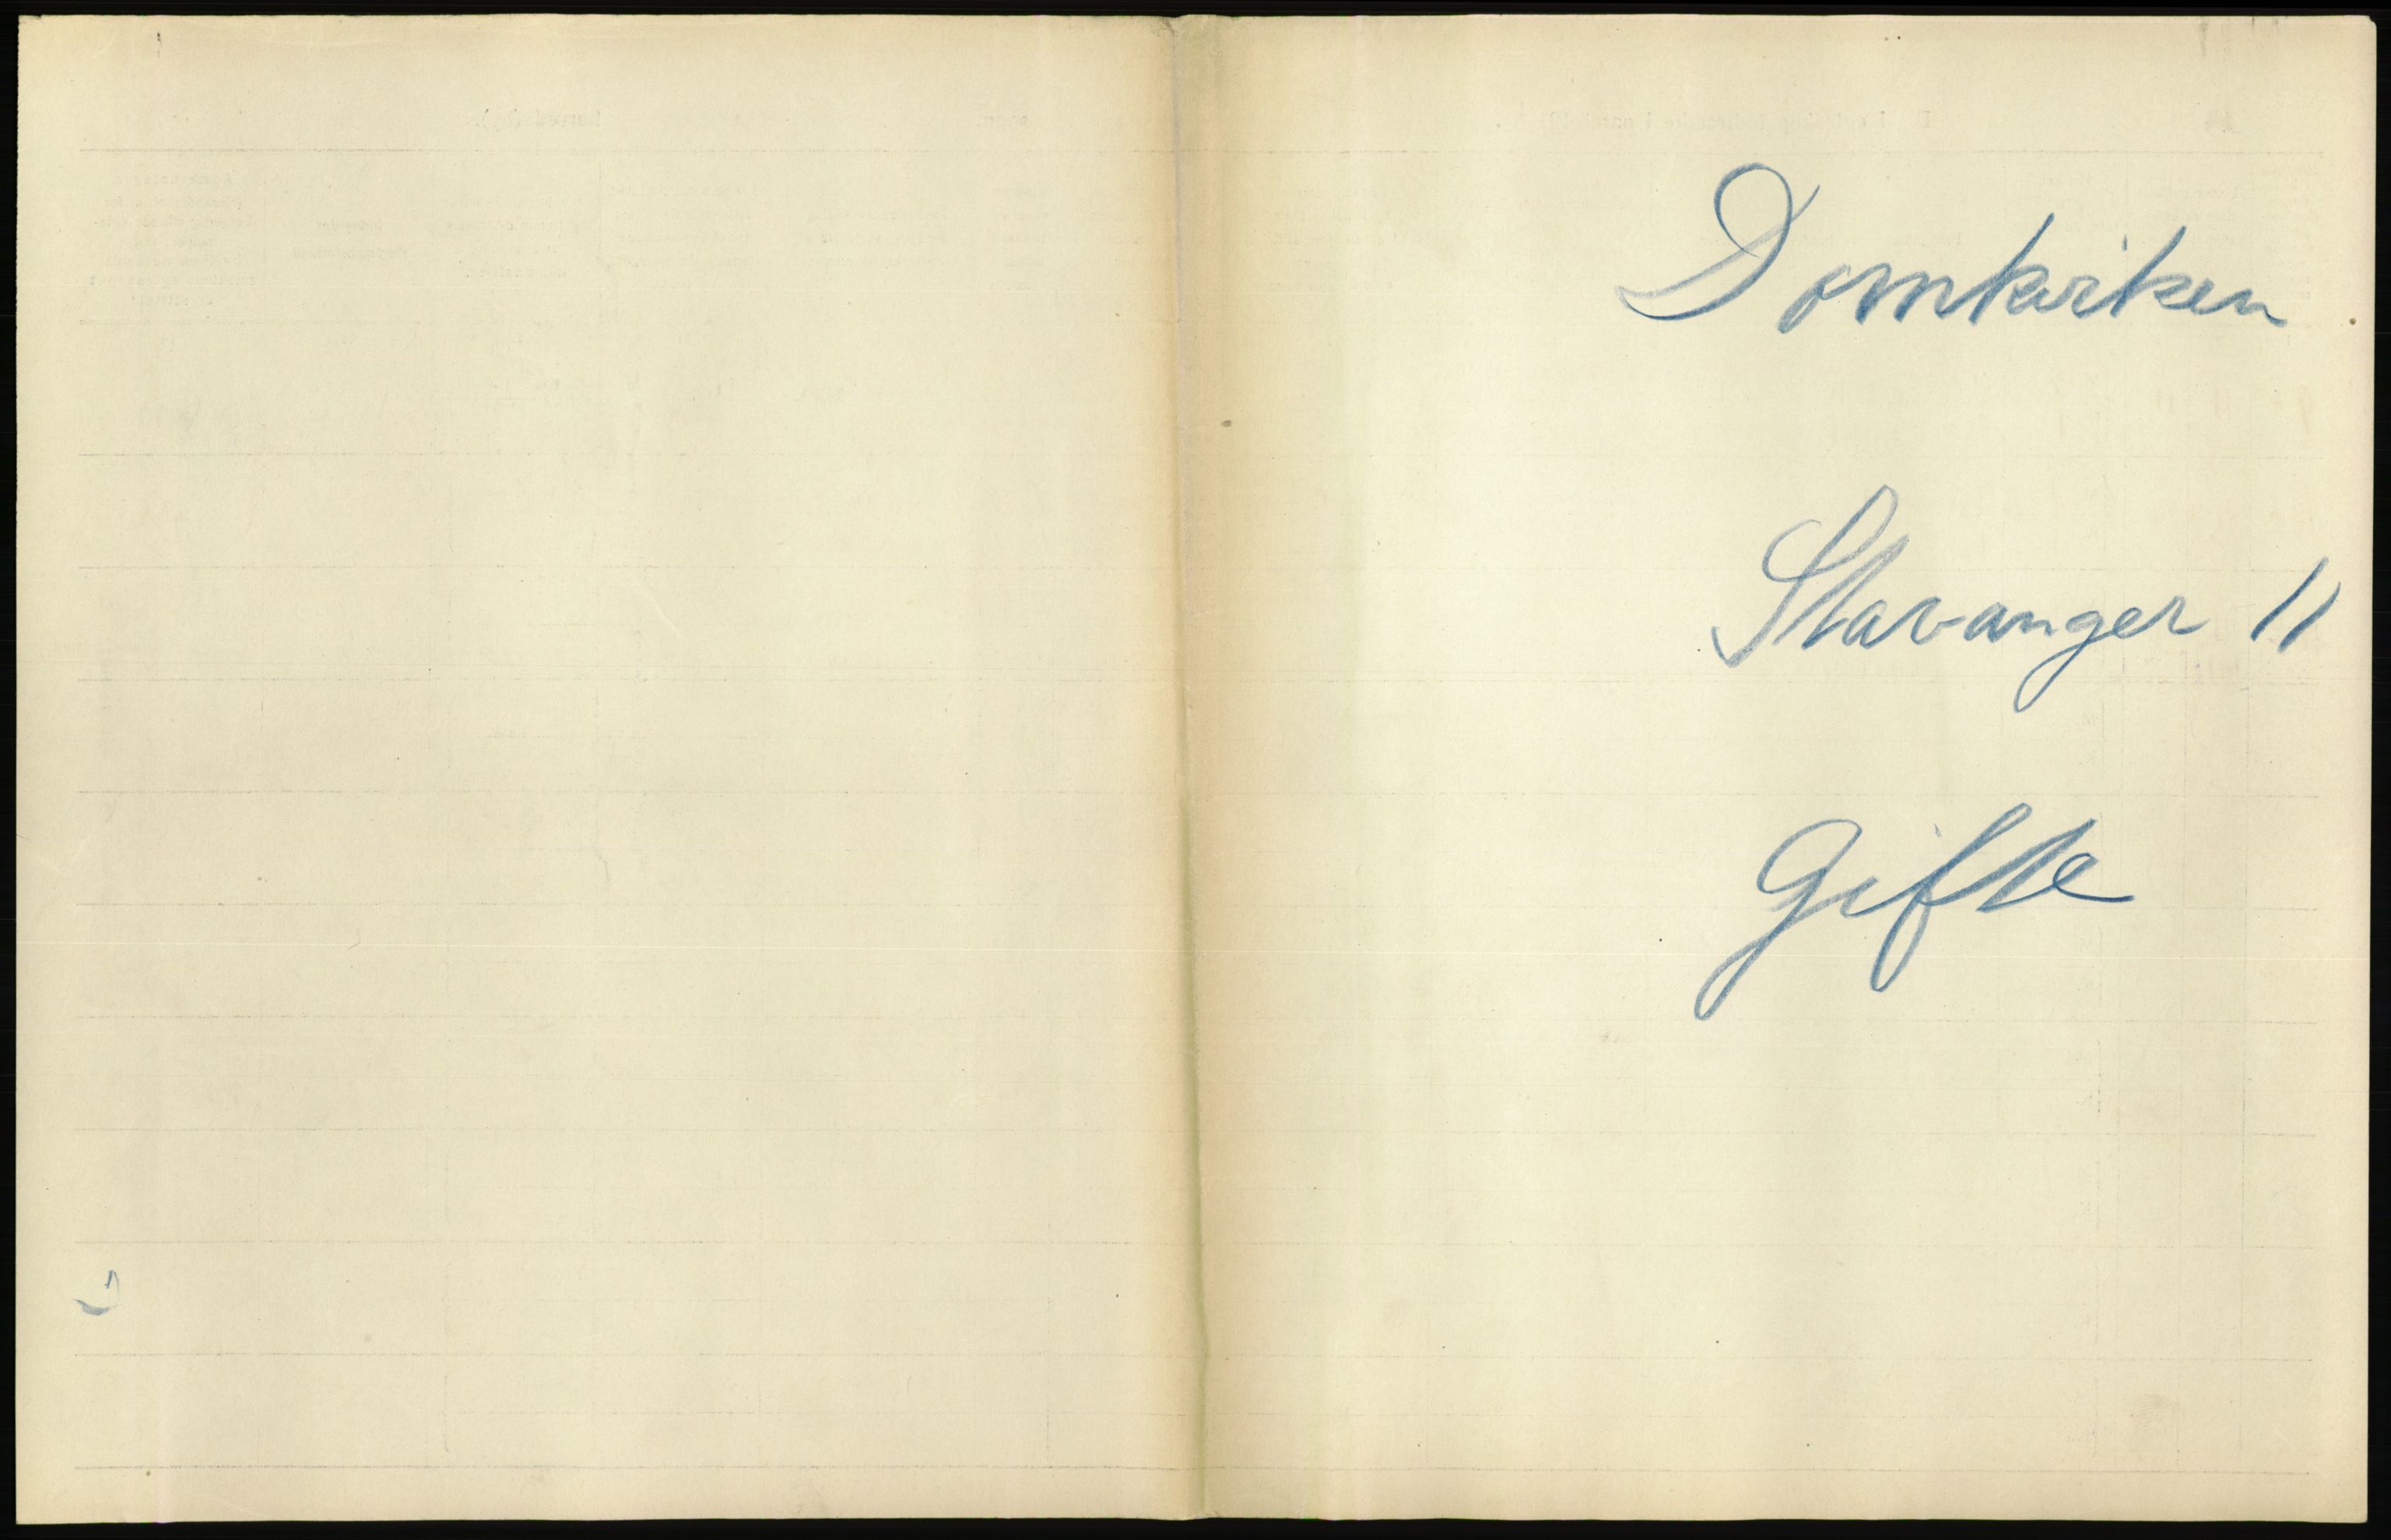 Domkirken
Stavanger 11
Gifte